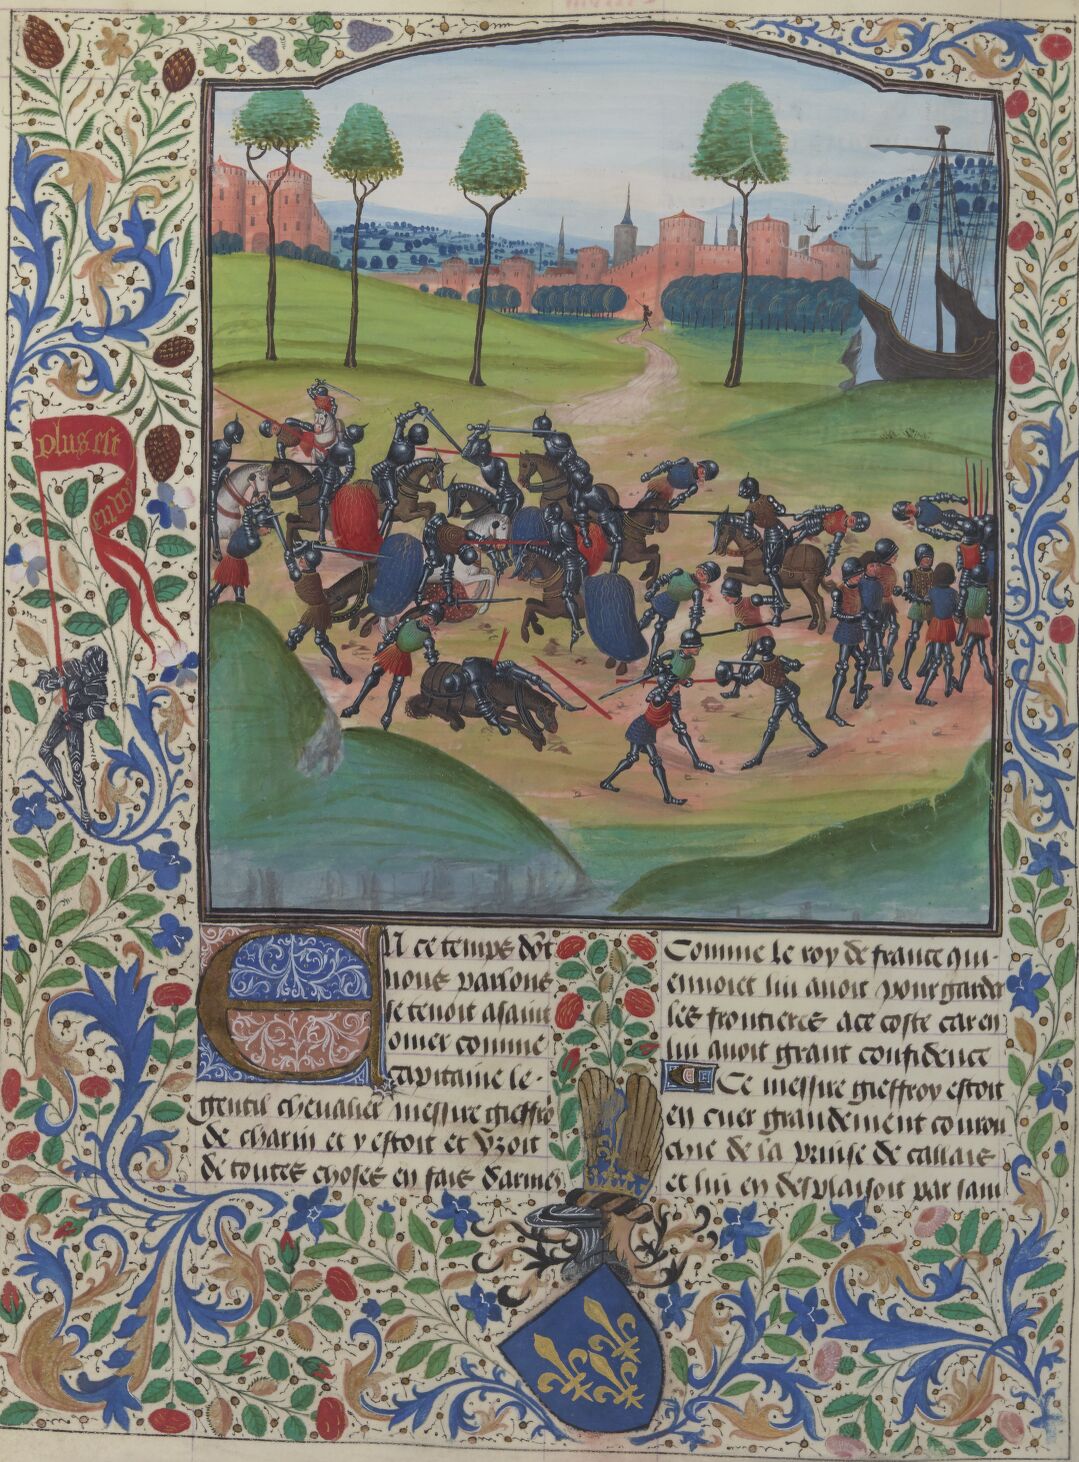 plus est
en vo9
En ce temps dōt
nous parlons
se tenoit a saint
omer comme
capitaine le-
gentil chevalier messire gieffroy
de charni et y estoit et vsoit
de toutes choses en fais darmes
Comme le roy de france qui-
enuoiet lui auoit pour garder
les frontieres a ce coste car en
lui auoit grant confidence
Ce messire gieffroy estoit
en cuer grandement courou
chie de la prinse de callais
et lui en desplaisoit par sam